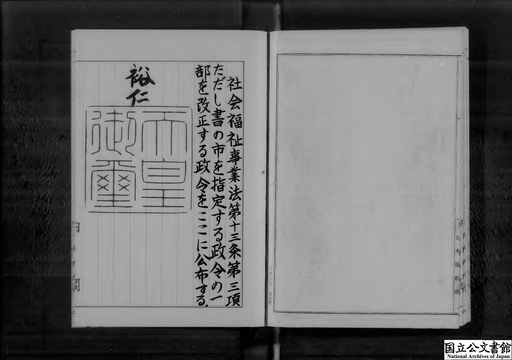 社会福祉事業法第十三条第三項
ただし書の市を指定する政令の一
部を改正する政令をここに公布する。
裕仁
天皇
御璽
国立公文書館
National Archives of Japan